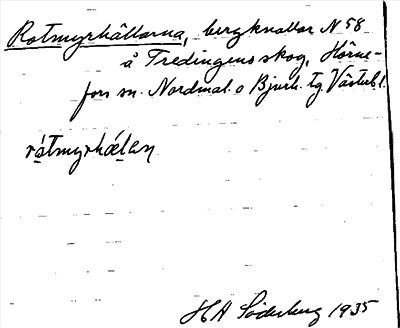 Rotmyrhällarna, bergknallar N 58
å Tredingens skog, Hörne-
fors sn. Nordmal. o Bjurh. tg Västerb l.
rótmyrhǽlan
HA Söderberg 1935